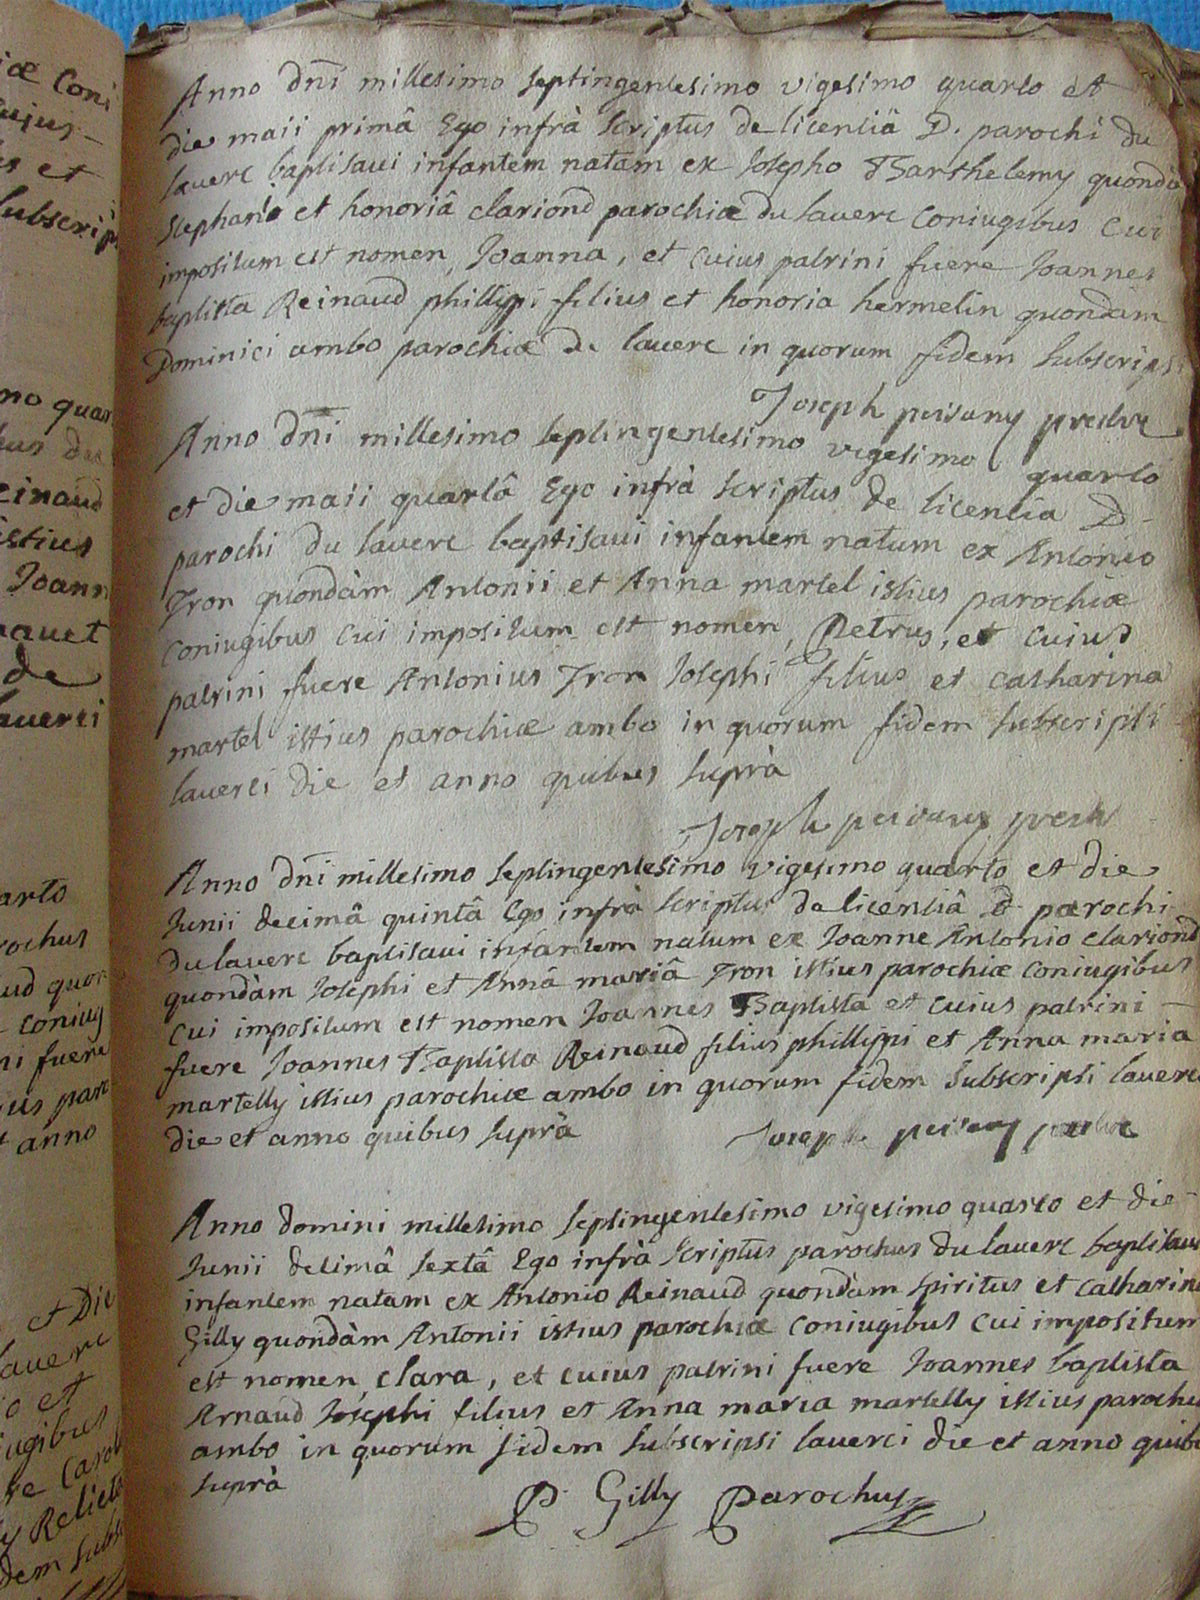 iæ Coni
cujus
et
subscrip
no quar
einaud
istius
Joann
de
laverci
arto
rochus
ud quon
coniug
ni fuere
ius paro
et anno
et Die
laverc
o et
iugibus
re Carol
y Relicta
dem subsc
Anno Dni millesimo septingentesimo vigesimo quarto et
die maii primâ Ego infrà scriptus de licentiâ D. parochi du
laverc baptisavi infantem natam ex Josepho Barthelemy quondà
Stephani et honoriâ clariond parochiæ du laverc coniugibus cui
impositum est nomen Joanna, et cuius patrini fuere Joannes
baptista Reinaud phillippi filius et honoria hermelin quondam
Dominici ambo parochiæ de laverc in quorum fidem subscripsi
Joseph peisany
Anno Dni millesimo septingentesimo vigesimo quarto
et die maii quartâ Ego infrà scriptus de licentia D.
parochi du laverc baptisavi infantem natum ex Antonio
Tron quondàm Antonii et Anna martel istius parochiæ
coniugibus cui impositum est nomen, Petrus, et cuius
patrini fuere Antonius Tron Josephi filius et catharina
martel istius parochiæ ambo in quorum fidem subscripsi
laverci die et anno quibus suprà
Joseph peisany
Anno Dni millesimo septingentesimo vigesimo quarto et die
Junii decimâ quintâ Ego infrà scriptus de licentiâ D. parochi
du laverc baptisavi infantem natum ex Joanne Antonio clariond
quondàm Josephi et Annâ mariâ Tron istius parochiæ coniugibus
cui impositum est nomen Joannes Baptista et cuius patrini
fuere Joannes Baptista Reinaud filius phillippi et Anna maria
martelly istius parochiæ ambo in quorum fidem subscripsi laverc
die et anno quibus suprà Joseph peisany
Anno domini millesimo septingentesimo vigesimo quarto et die
Junii decimâ sextâ Ego infrà scriptus parochus du laverc baptisavi
infantem natam ex Antonio Reinaud quondàm spiritus et catharina
Gilly quondàm Antonii istius parochiæ coniugibus cui impositum
est nomen clara, et cuius patrini fuere Joannes baptista
Arnaud Josephi filius et Anna maria martelly istius parochiæ
ambo in quorum fidem subscripsi laverci die et anno quibu
suprà
P. Gilly Parochus